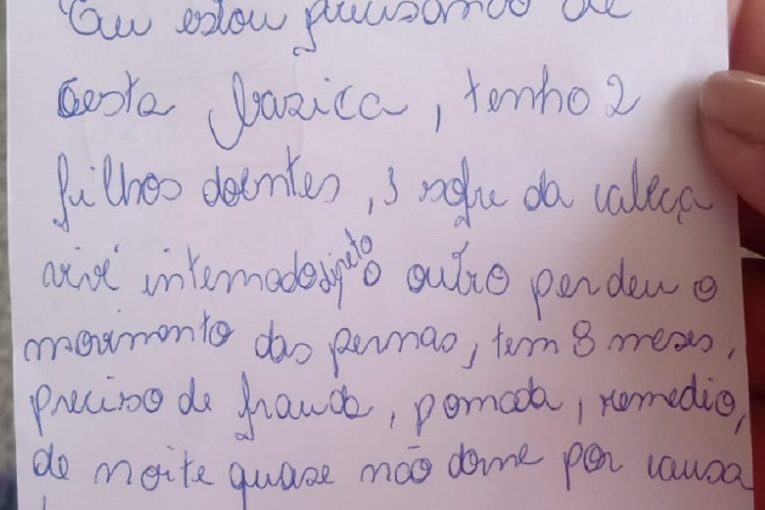 Eu estou precisando de
Cesta bazica, tenho 2
filhos doentes, 1 sofre da cabeça
vive internado direto o outro perdeu o
movimento das pernas, tem 8 meses,
preciso de frauda, pomada, remedio,
de noite quase não dorme por causa